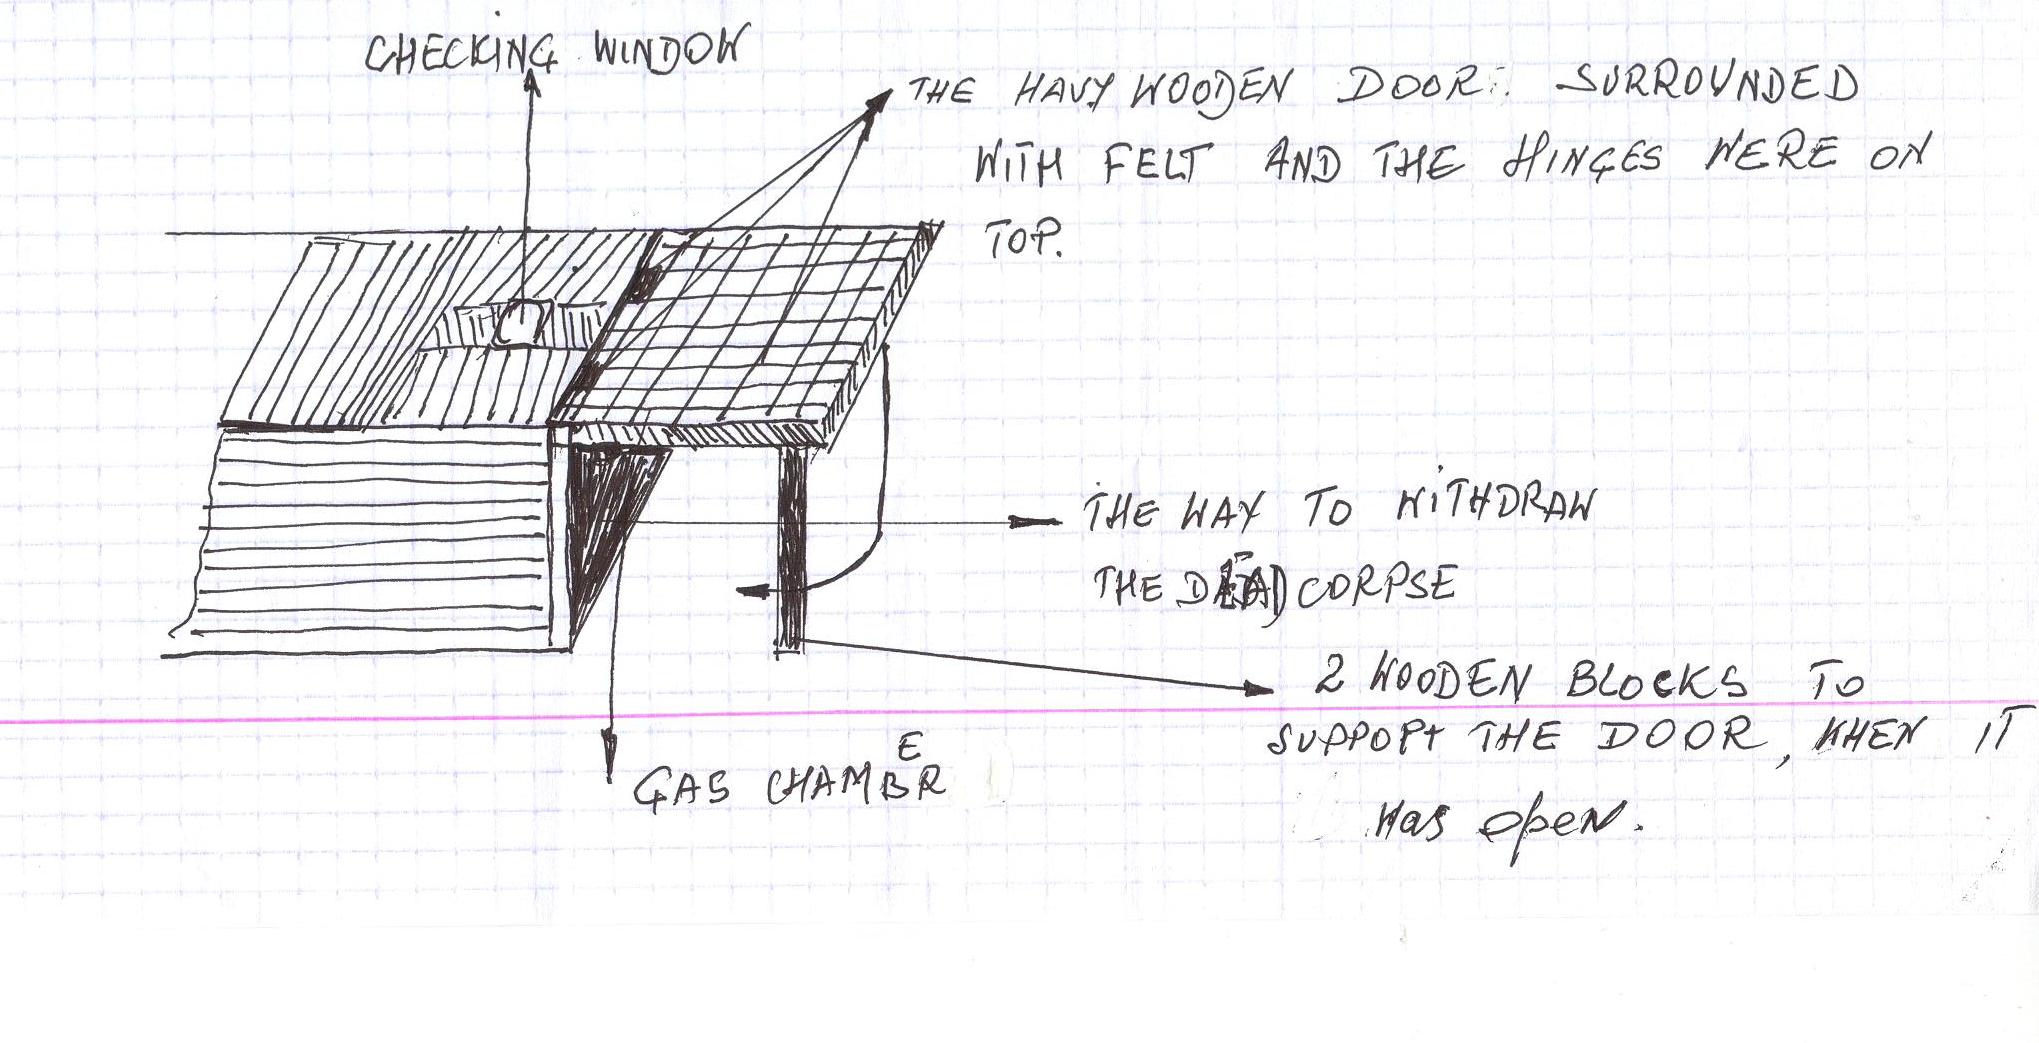 CHECKING WINDOW
THE HAVY WOODEN DOOR: SURROUNDED
WITH FELT AND THE HINGES WERE ON
TOP.
THE WAY TO WITHDRAW
THE DEAD CORPSE
2 WOODEN BLOCKS TO
SUPPOPT THE DOOR, WHEN IT
was open.
GAS CHAMBER